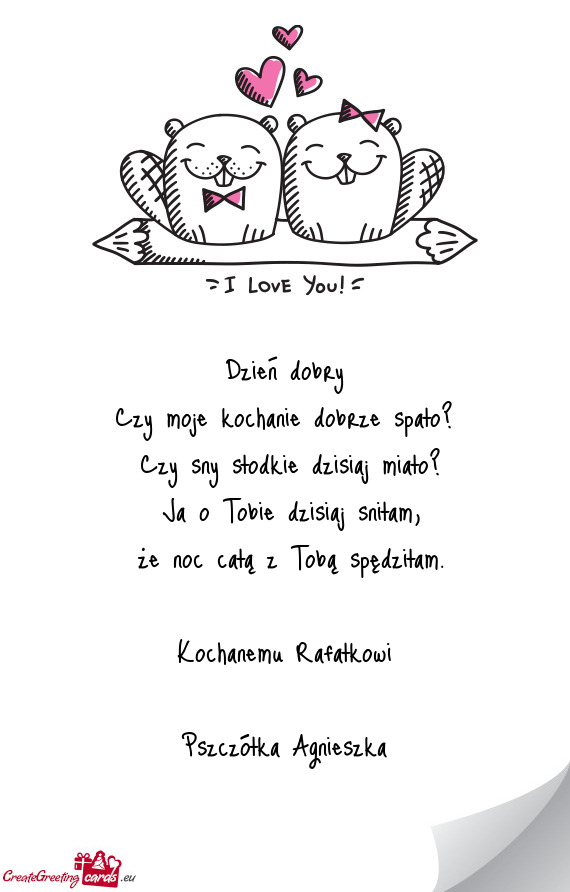 I LOVE You!
Dzień dobry
Czy moje kochanie dobrze spało?
Czy sny słodkie dzisiaj miało?
Ja o Tobie dzisiaj sniłam,
że noc całą z Tobą spędziłam.
Kochanemu Rafałkowi
Pszczółka Agnieszka
CreateGreeting cards .eu